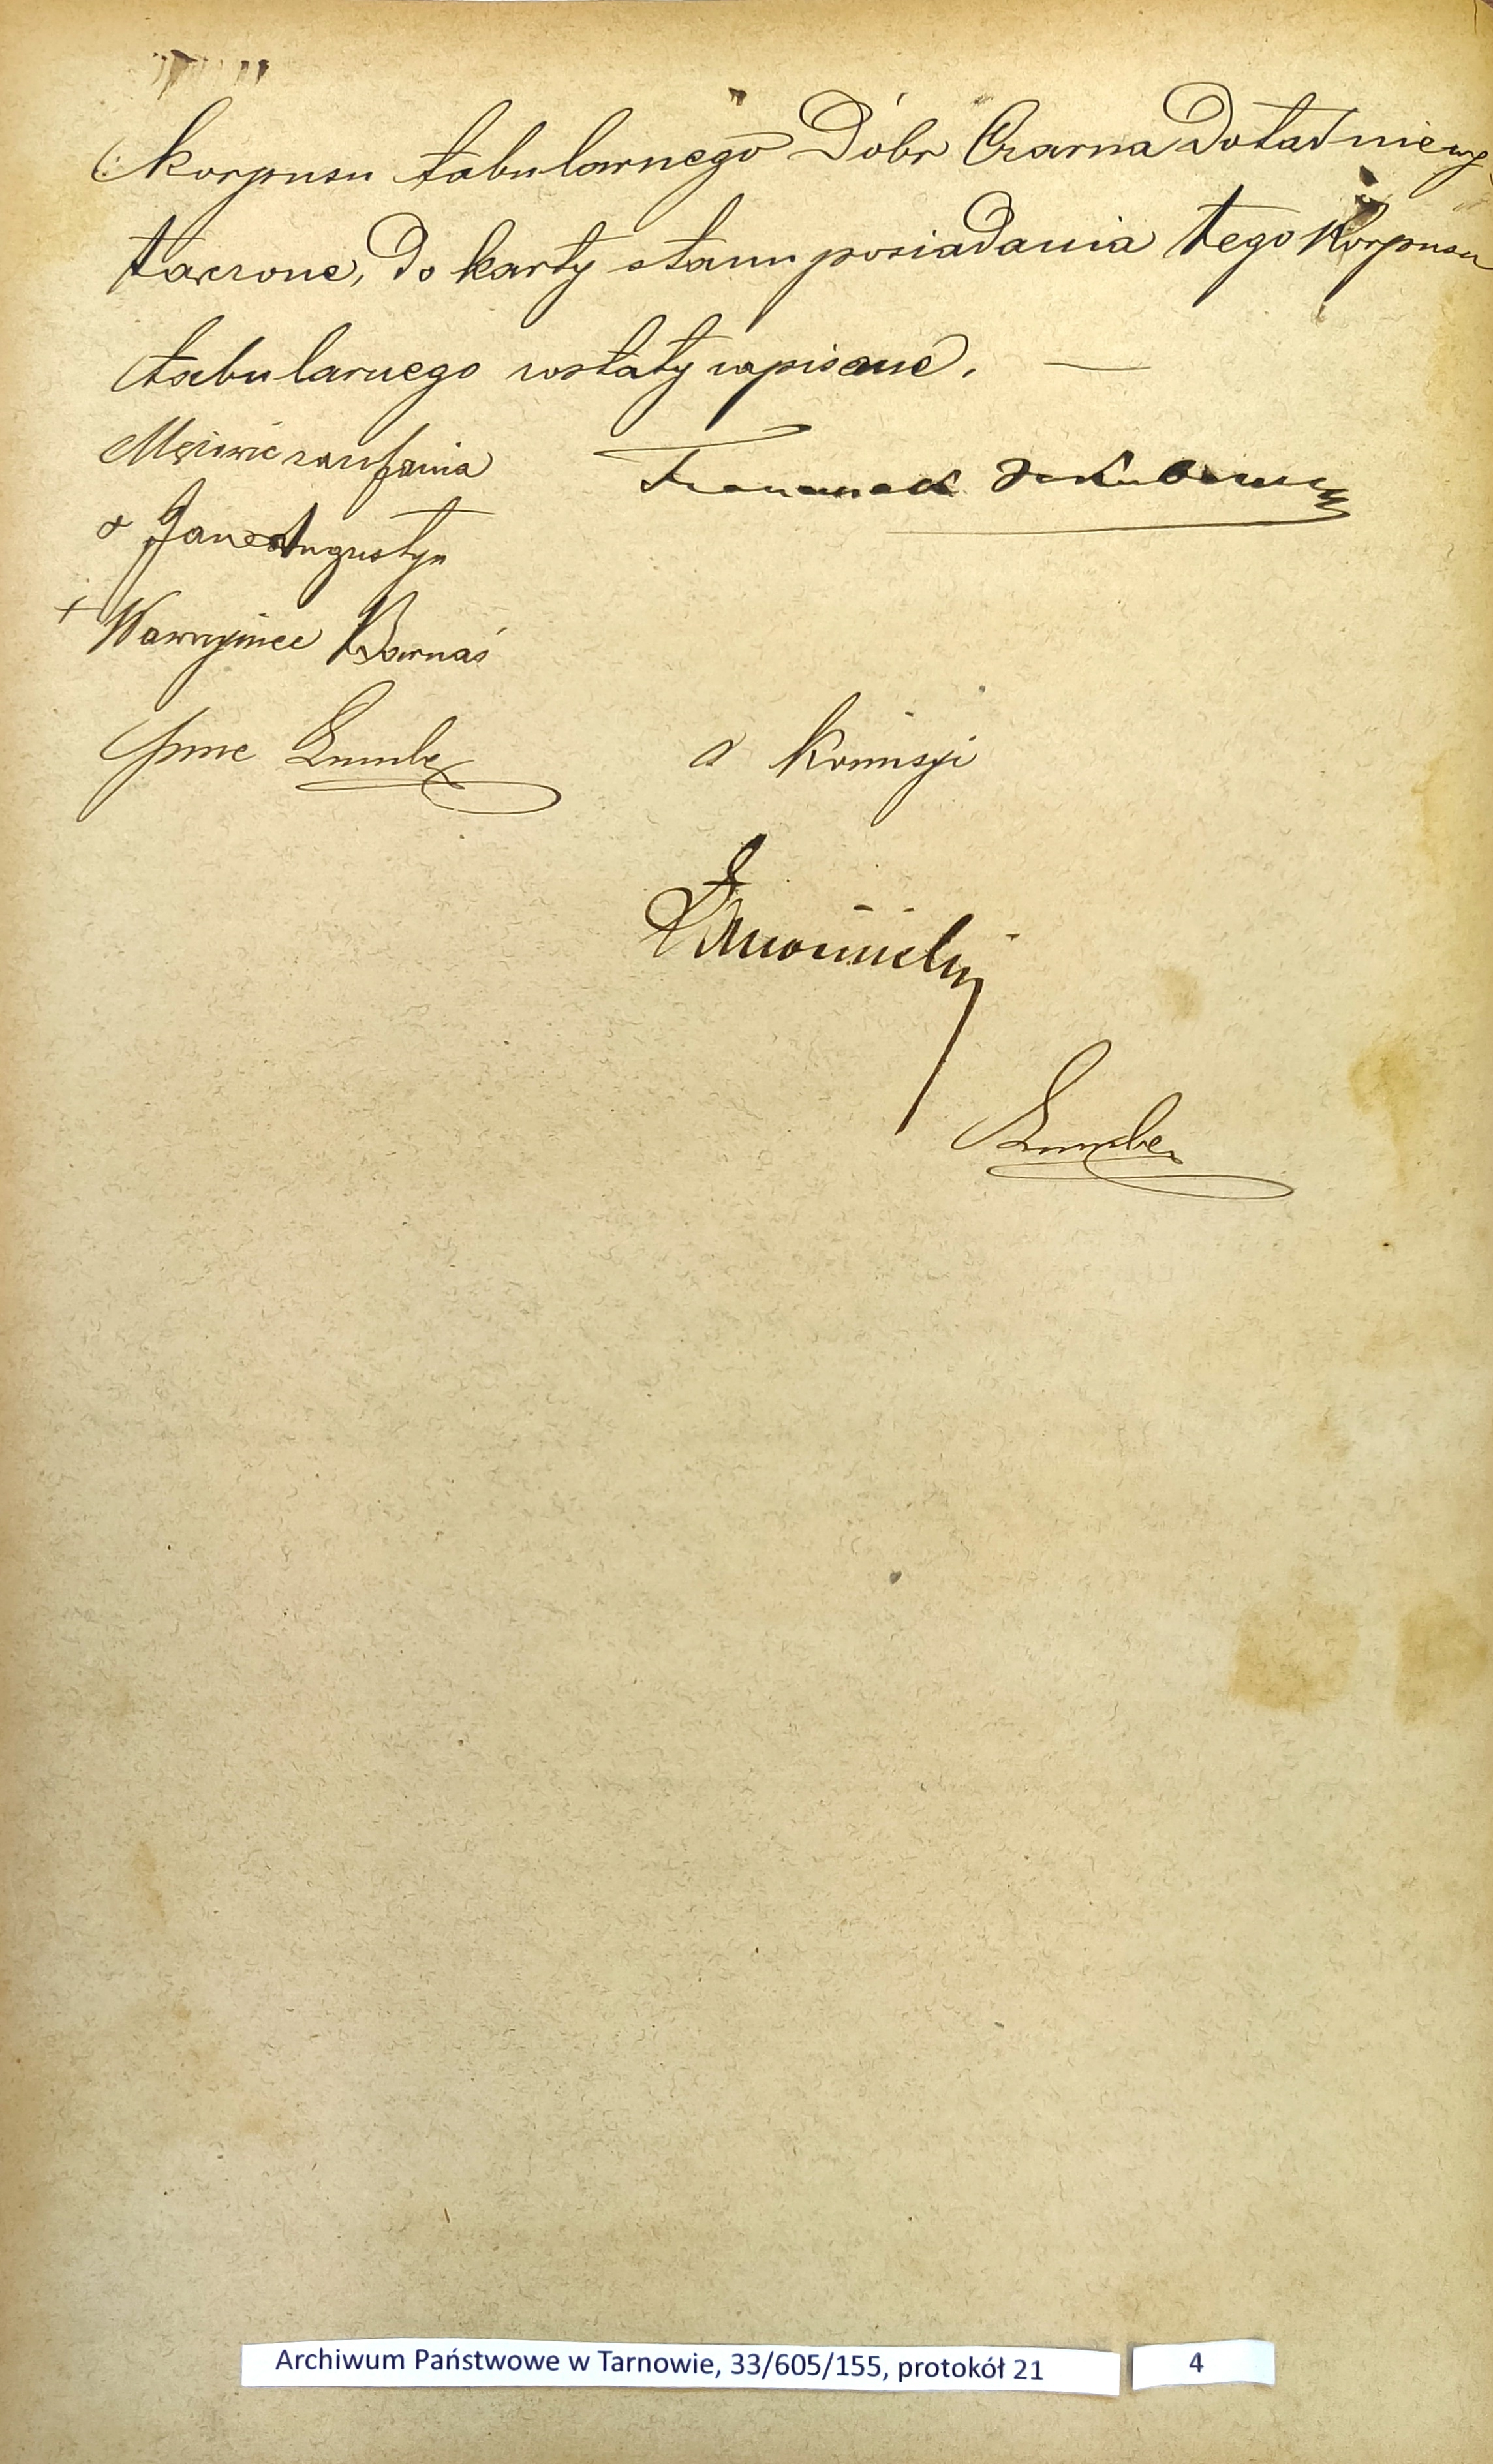 korpusu tabularnego Dóbr Czarna Dotąd nie wy
łączone, do karty stanu posiadania tego Korpusu
tabularnego zostały wpisane. —
Mężowie zaufania
Jan Augustyn
+ Wawrzyniec Barnaś
Franciszek
Komisji
Archiwum Państwowe w Tarnowie, 33/605/155, protokół 21
4